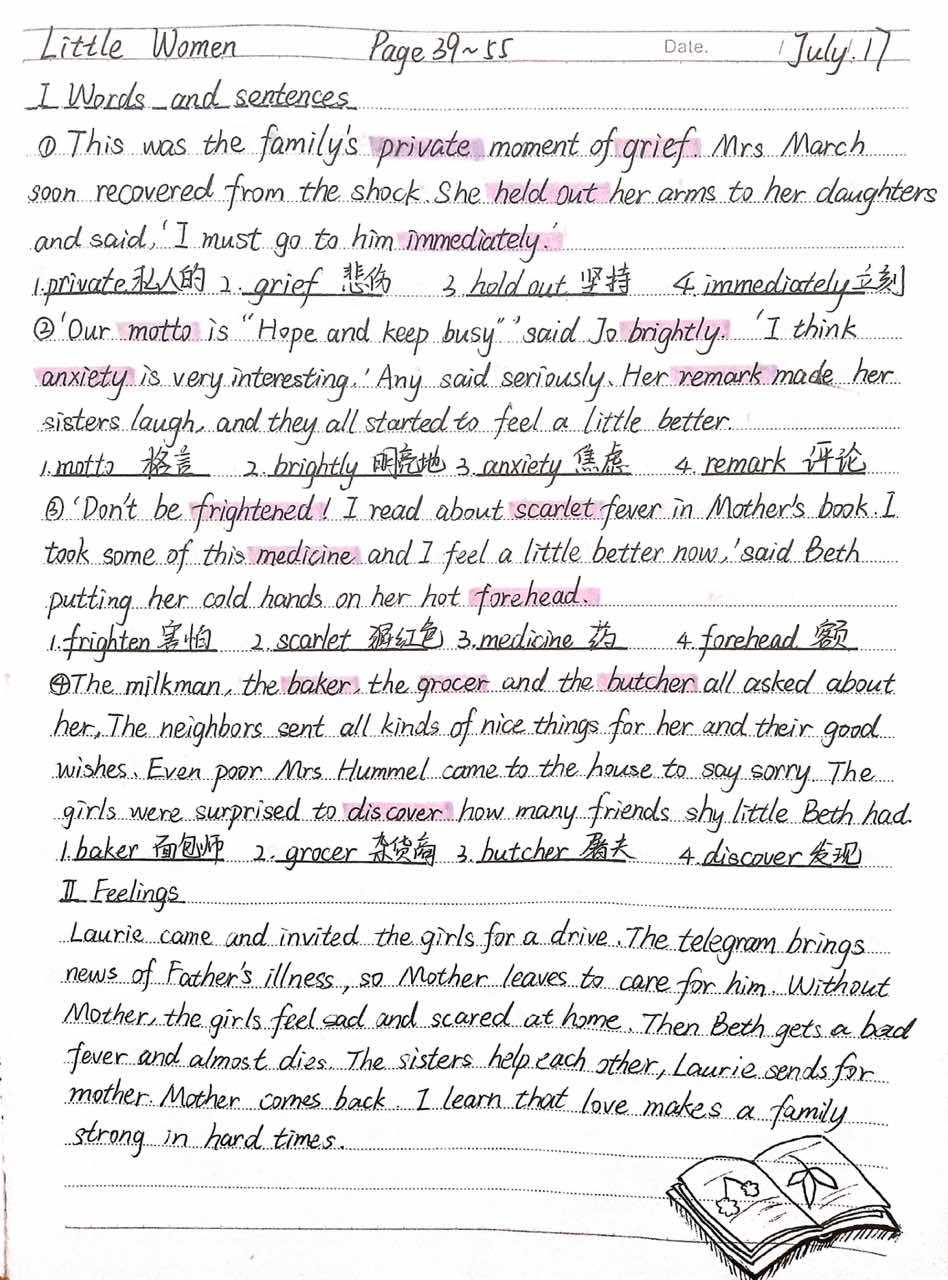 Little Women Page 39~55 Date. / July.17
I Words and sentences
① This was the family's private moment of grief. Mrs March
soon recovered from the shock. She held out her arms to her daughters
and said, 'I must go to him immediately.'
1.private 私人的 2. grief 悲伤 3. hold out 坚持 4. immediately 立刻
② 'Our motto is "Hope and keep busy" 'said Jo brightly. 'I think
anxiety is very interesting.' Any said seriously. Her remark made her
sisters laugh, and they all started to feel a little better.
1.motto 格言 2. brightly 明亮地 3. anxiety 焦虑 4. remark 评论
③ 'Don't be frightened! I read about scarlet fever in Mother's book. I
took some of this medicine and I feel a little better now,' said Beth
putting her cold hands on her hot forehead.
1.frighten 害怕 2. scarlet 猩红色 3. medicine 药 4. forehead 额
④ The milkman, the baker, the grocer and the butcher all asked about
her, The neighbors sent all kinds of nice things for her and their good
wishes. Even poor Mrs Hummel came to the house to say sorry. The
girls were surprised to discover how many friends shy little Beth had.
1.baker 面包师 2. grocer 杂货商 3. butcher 屠夫 4. discover 发现
II Feelings
Laurie came and invited the girls for a drive. The telegram brings
news of Father's illness, so Mother leaves to care for him. Without
Mother, the girls feel sad and scared at home. Then Beth gets a bad
fever and almost dies. The sisters help each other, Laurie sends for
mother. Mother comes back. I learn that love makes a family
strong in hard times.